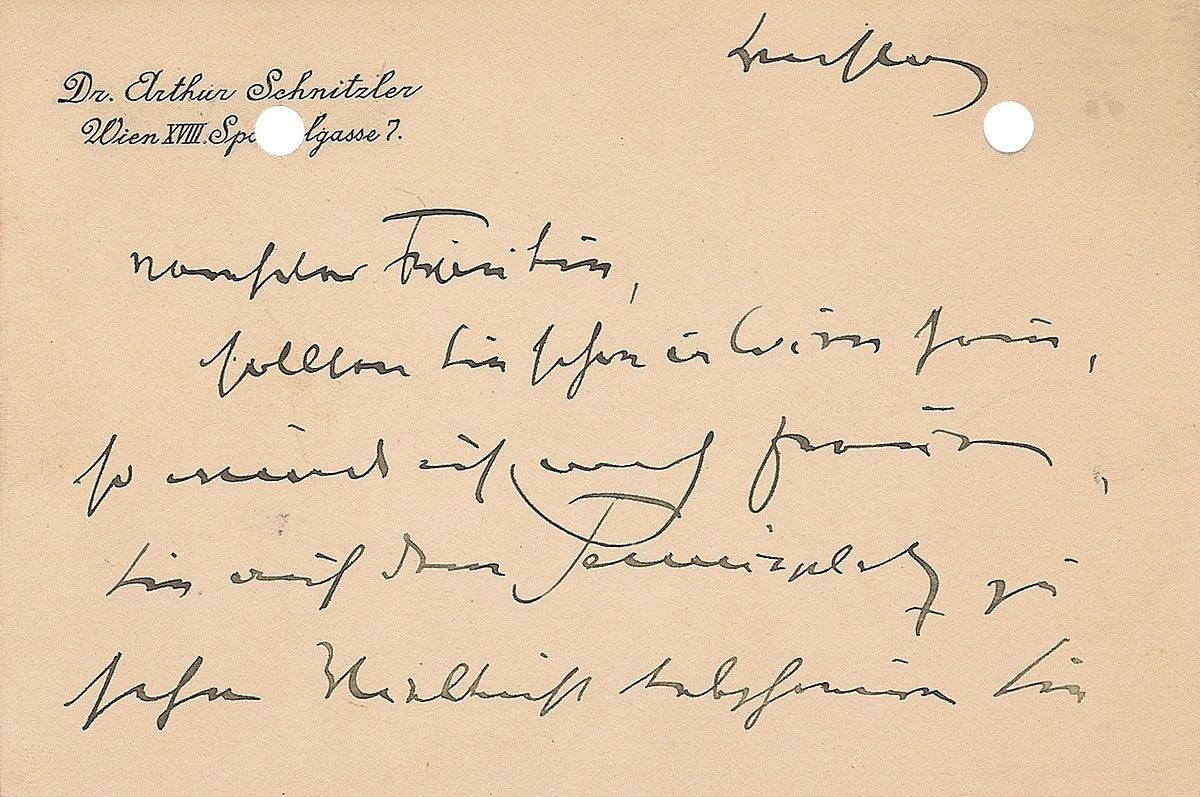 Dr. Arthur Schnitzler
Wien XVIII. Spo lgasse 7.
Samstag
verehrtes Fräulein,
sollten Sie schon in Wien sein,
so würde ich mich freuen,
Sie auf dem Tennisplatz zu
sehen. Vielleicht telephoniren Sie